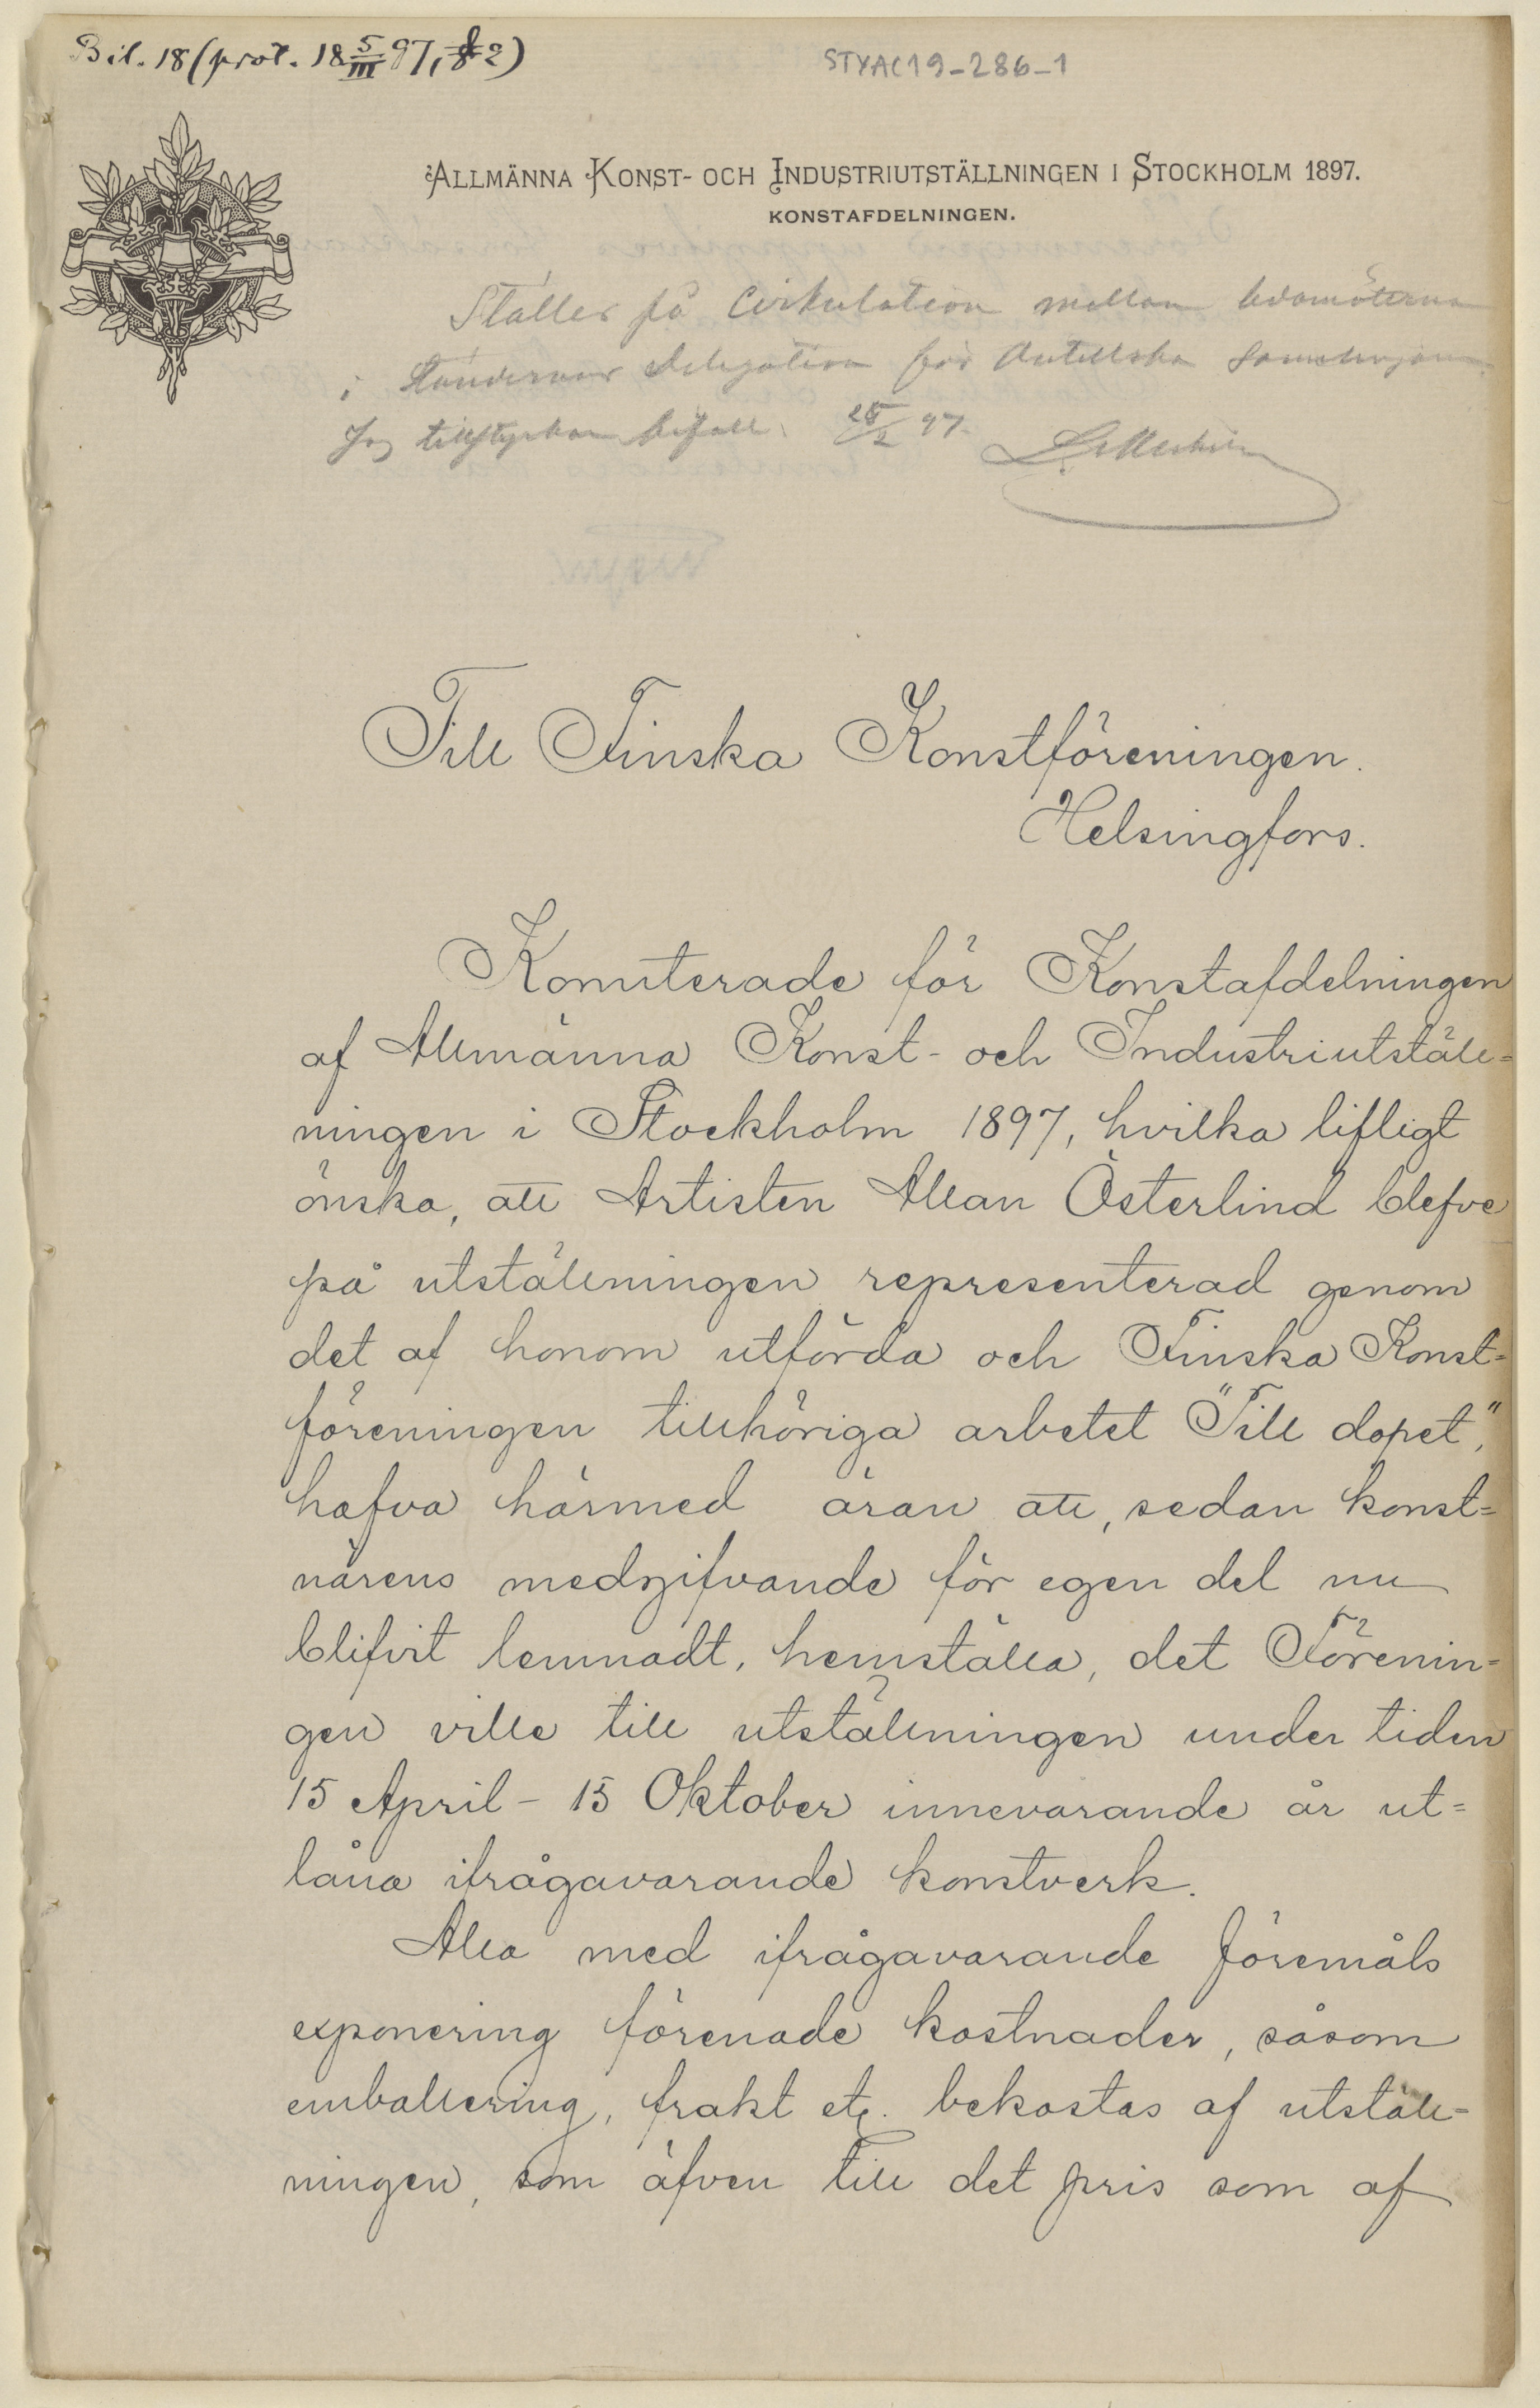 Bil. 18 (prot. 18 5/III 97, § 2)
STYAC19-286-1
ALLMÄNNA KONST- OCH INDUSTRIUTSTÄLLNINGEN I STOCKHOLM 1897.
KONSTAFDELNINGEN.
Ställes på Cirkulation mellan ledamöterna
i delegation för Antellska
Jag tillstyrker bifall. 25/2 97.
Till Finska Konstföreningen.
Helsingfors.
Komiterade för Konstafdelningen
af Allmänna Konst- och Industriutställ=
ningen i Stockholm 1897, hvilka lifligt
önska, att Artisten Allan Österlind blefve
på utställningen representerad genom
det af honom utförda och Finska Konst=
föreningen tillhöriga arbetet "Till dopet",
hafva härmed äran att, sedan konst=
närens medgifvande för egen del nu
blifvit lemnadt, hemställa, det Förenin=
gen ville till utställningen under tiden
15 April - 15 Oktober innevarande år ut=
låna ifrågavarande konstverk.
Alla med ifrågavarande föremåls
exponering förenade kostnader, såsom
emballering, frakt etc. bekostas af utställ=
ningen, som äfven till det pris som af